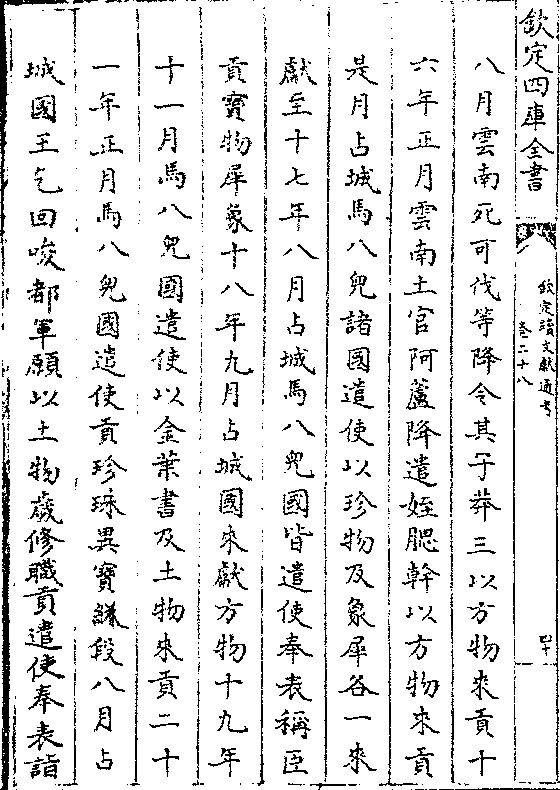 欽定四庫全書
欽定續文獻通考
卷二十八
四十
八月雲南死可伐等降令其子莽三以方物來貢十
六年正月雲南土官阿蘆降遣姪腮斡以方物來貢
是月占城馬八兒諸國遣使以珍物及象犀各一來
獻至十七年八月占城馬八兒國皆遣使奉表稱臣
貢寶物犀象十八年九月占城國來獻方物十九年
十一月馬八兒國遣使以金葉書及土物來貢二十
一年正月馬八兒國遣使貢珍珠異寶縑段八月占
城國王乞回唆都軍願以土物歲修職貢遣使奉表詣